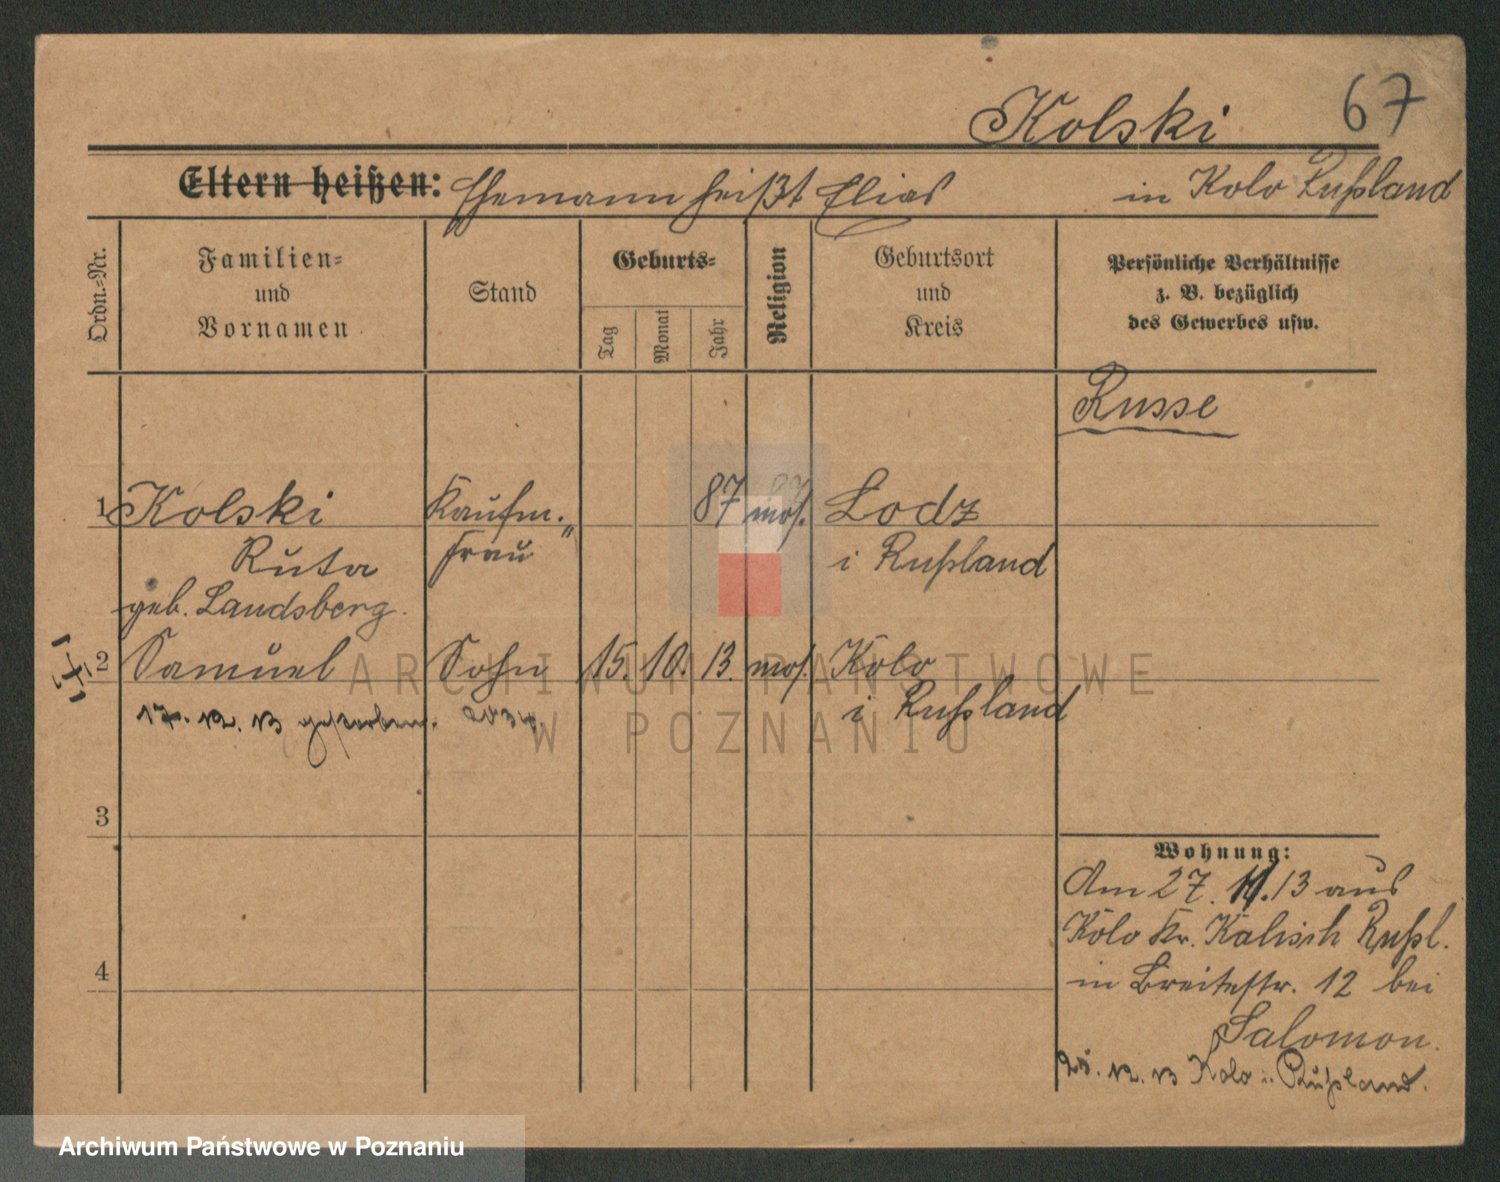 67
Kolski
Eltern heißen: Ehemann heißt Elias in Kolo Rußland
Ordn.-Nr.
Familien-
und
Vornamen
Stand
Geburts-
Tag
Monat
Jahr
Religion
Geburtsort
und
Kreis
Persönliche Verhältnisse
z. B. bezüglich
des Gewerbes usw.
Russe
1 Kolski Kaufm. 87 mos. Lodz
Ruta frau i Rußland
geb. Landsberg.
2 Samuel Sohn 15. 10. 13. mos. Kolo
17. 12. 13 gestorben. i Rußland
3
4
Wohnung:
Am 27. 11. 13 aus
Kolo Kr. Kalisch Rußl.
in Breitestr. 12 bei
Salomon.
12. 13 Kolo i. Rußland.
ARCHIWUM PAŃSTWOWE
W POZNANIU
Archiwum Państwowe w Poznaniu